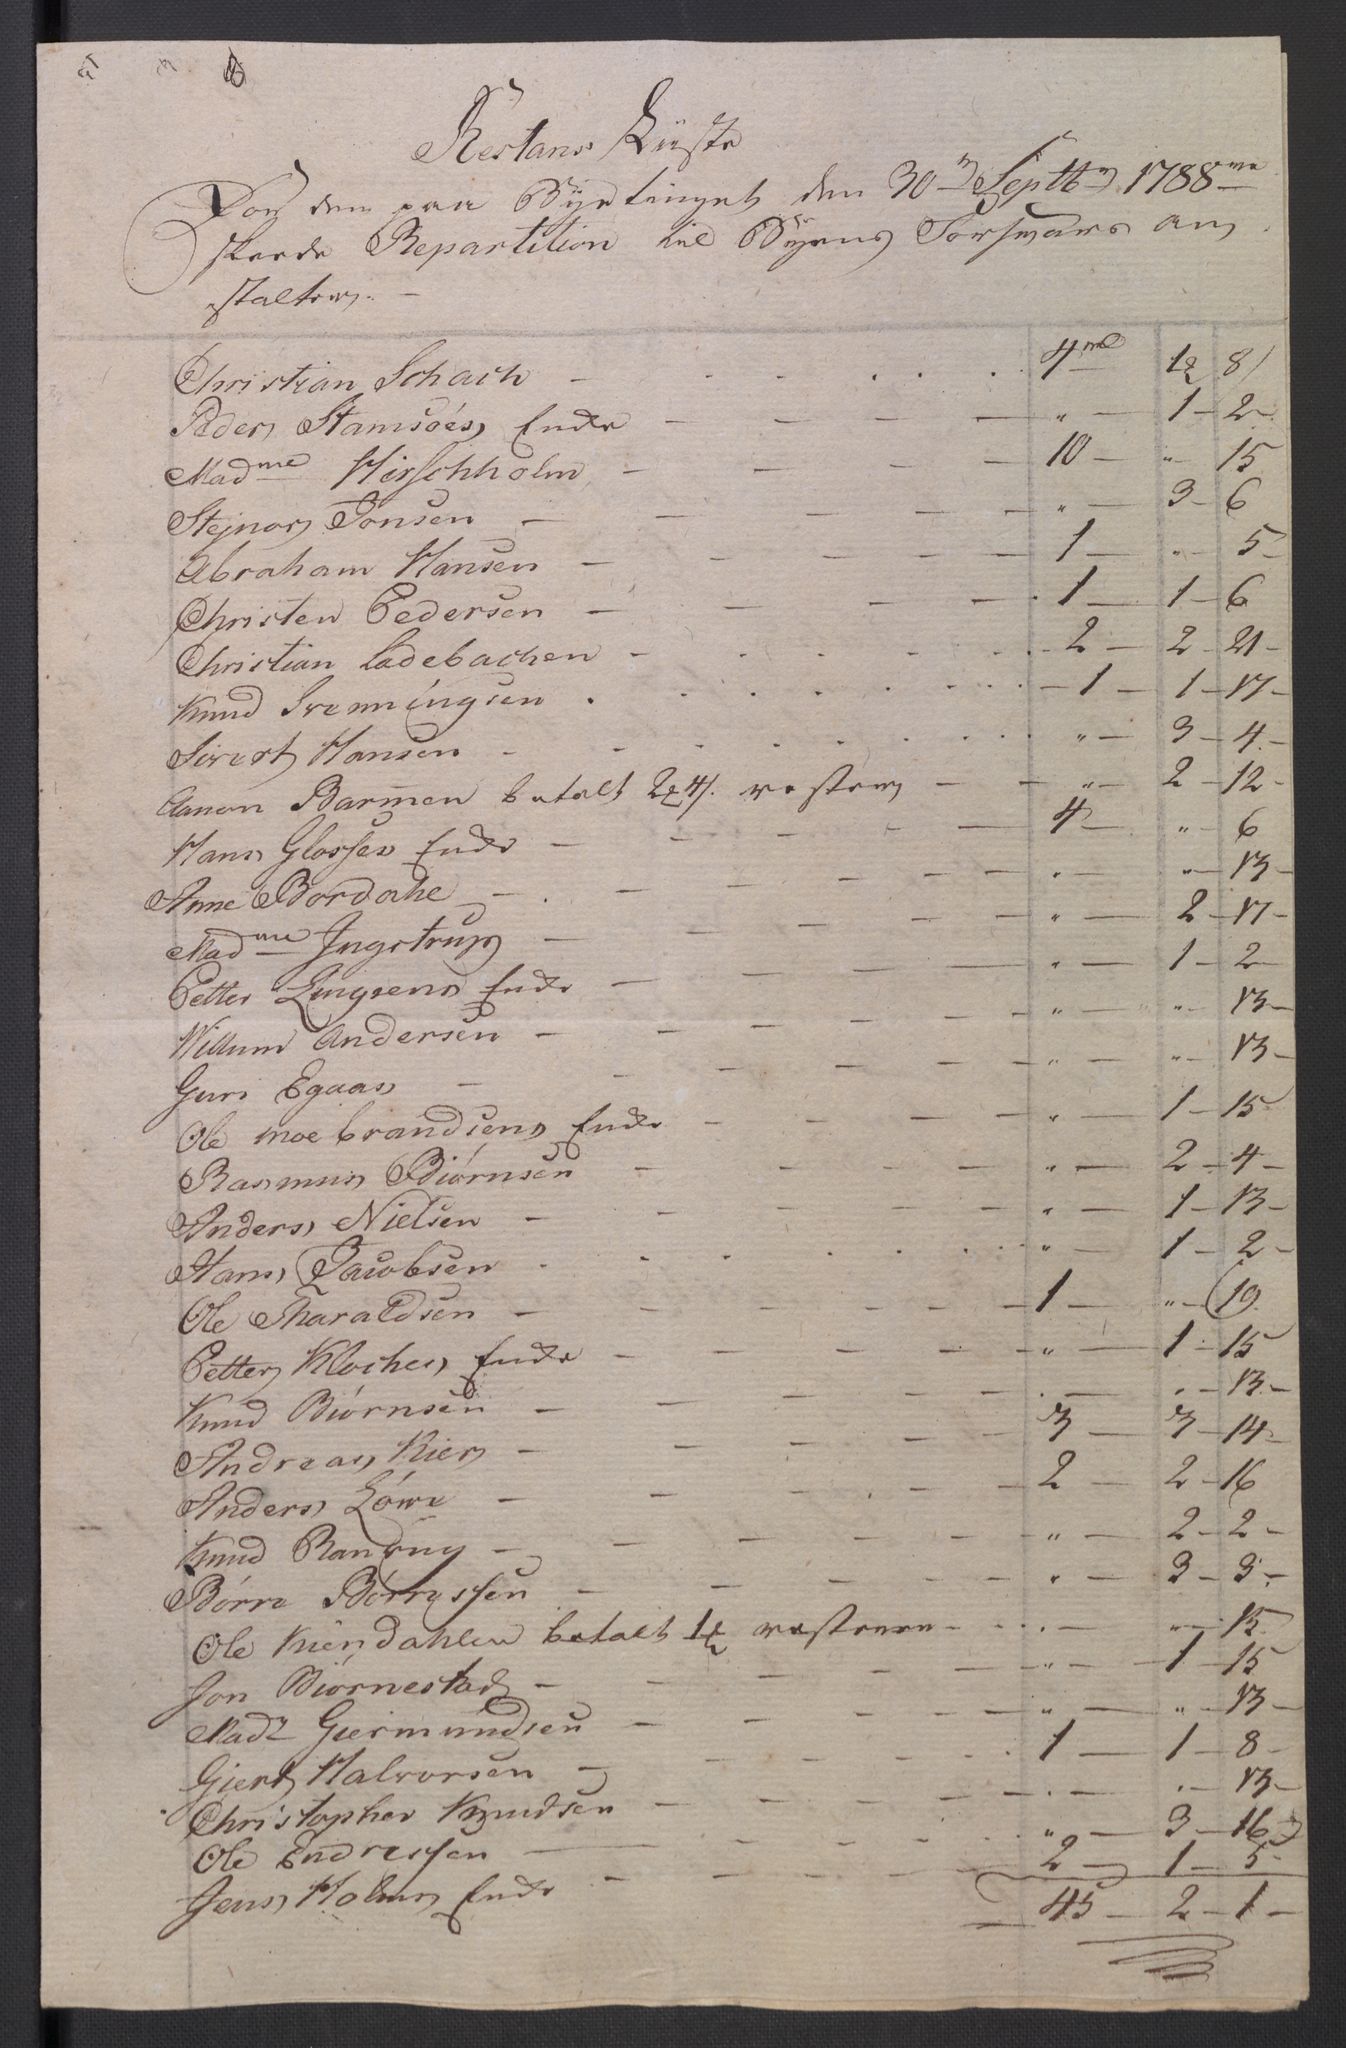 Restans Liiste
For den paa Byetinget den 30n Septbr 1788me
skeede Repartition til Byens Forsvars an
stalter. —
Christian Schach — 4rd 1 8
Peder Stamsöes Enke — " — 1 — 2
Madme Hirschholm — 10 — " — 15
Stejnor Jonsen — " — 3 — 6
Abraham Hansen — 1 — " — 5
Christen Pedersen — 1 — 1 — 6
Christian Ladebachen — 2 — 2 — 21
Knud Svenningsen — 1 — 1 — 17
Sivert Hansen — " — 3 — 4
Aanon Barmen betalt 2 4 resterer — " — 2 — 12
Hans Glosses Enke — 4 — " — 6
Anne Bordahe — " — " — 13
Madme Ingstrup — " — 2 — 17
Petter Enke — " — 1 — 2
Willum Andersen — " — " — 13
Guri Egaas — " — " — 13
Ole moebrandsens Enke — " — 1 — 15
Rasmus Biörnsen — " — 2 — 4
Anders Nielsen — " — 1 — 13
Hans Jacobsen — " — 1 — 2
Ole Tharaldsen — 1 — " — 19
Petter Klockes Enke — " — 1 — 15
Knud Biörnsen — " — " — 13
Andreas Kier — 3 — 3 — 14
Anders Löwe — 2 — 2 — 16
Knud Randuig — " — 2 — 2
Börre Börressen — " — 3 — 3
Ole Kiendahlen betalt 1 resterer — " — " — 15
Jon Biornestad — " — 1 — 15
Mad Giermundsen — " — " — 13
Giert Halvorsen — 1 — 1 — 8
Christopher Knudsen — " — " — 13
Ole Endressen — " — 3 — 16
Jens Holms Enke — 2 — 1 — 5
45 — 2 — 1